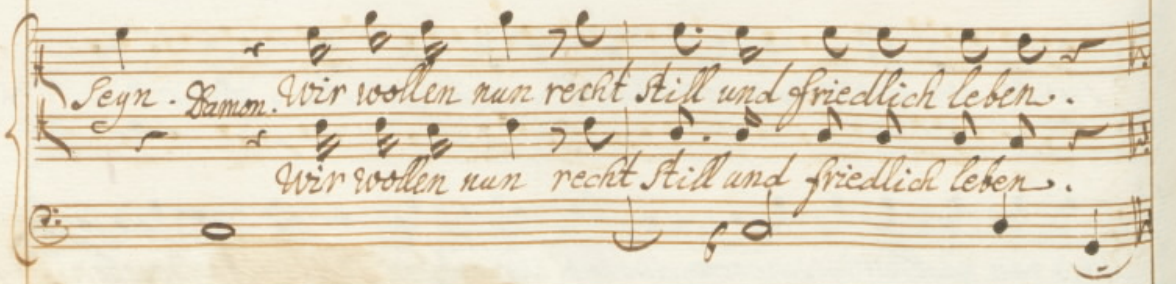 Seyn. Damon. Wir wollen nun recht Still und friedlich leben.
Wir wollen nun recht Still und friedlich leben.
6